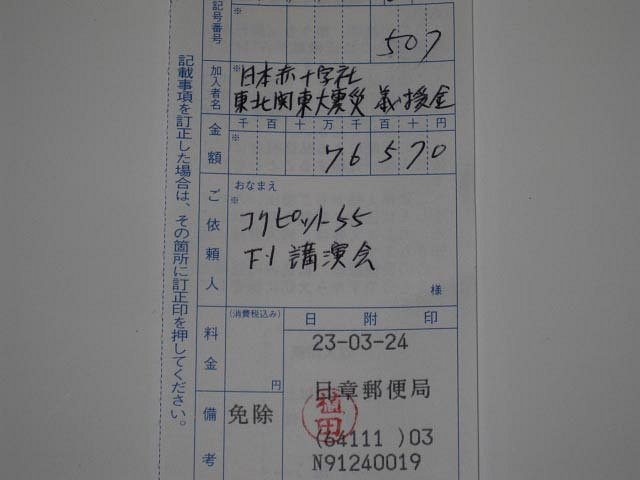 記号番号
※
507
加入者名
※日本赤十字社
東北関東大震災 義援金
金額
千 百 十 万 千 百 十 円
※
76570
ご依頼人
おなまえ
※
コクピット55
F1 講演会
様
料金
(消費税込み)
円
日 附 印
23-03-24
日章郵便局
(64111 )03
N91240019
備考
免除
記載事項を訂正した場合は、その箇所に訂正印を押してください。